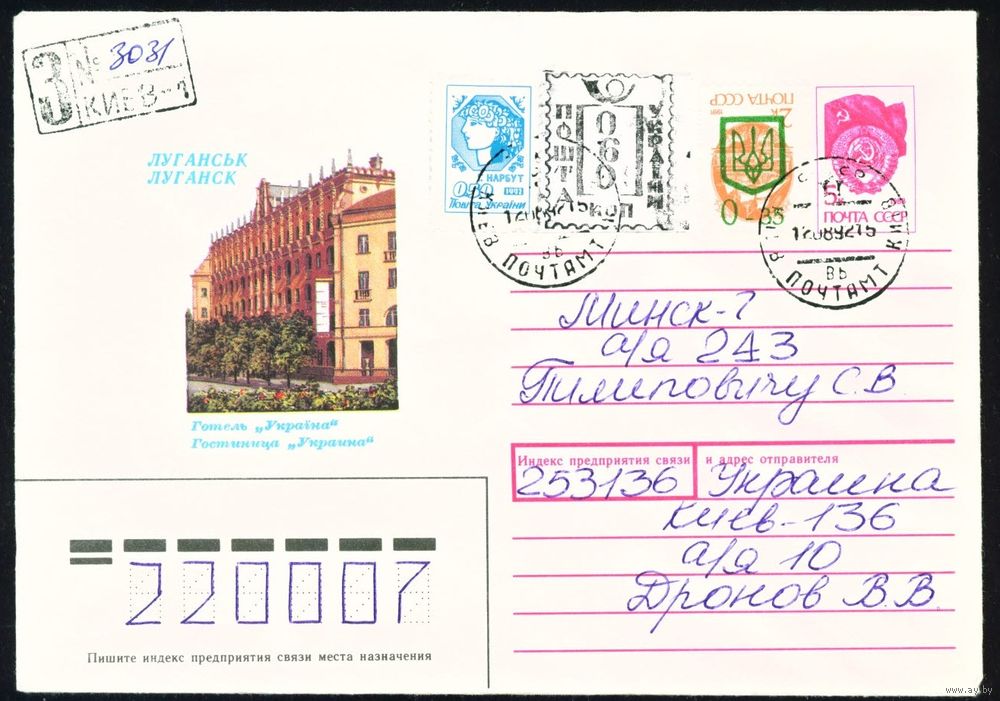 З № 3031
КИЕВ-1
ЛУГАНСЬК
ЛУГАНСК
Готель „Україна“
Гостиница „Украина“
Г. НАРБУТ
0.50 1992
Пошта України
ПОШТА
УКРАЇНИ
КОП
ПОЧТА СССР
0-35
5к
ПОЧТА СССР
КИЕВ
12089215
ВЬ
ПОЧТАМТ
КИЕВ
12089215
ВЬ
ПОЧТАМТ
Минск-7
а/я 243
Пилиповичу С.В
Индекс предприятия связи и адрес отправителя
253136 Украина
Киев-136
а/я 10
Дронов В.В
220007
Пишите индекс предприятия связи места назначения
www.ay.by